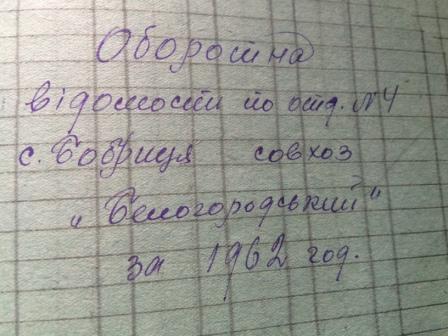 Оборотна
відомость по отд. №4
с. Бобриця совхоз
„Белогородський"
за 1962 год.